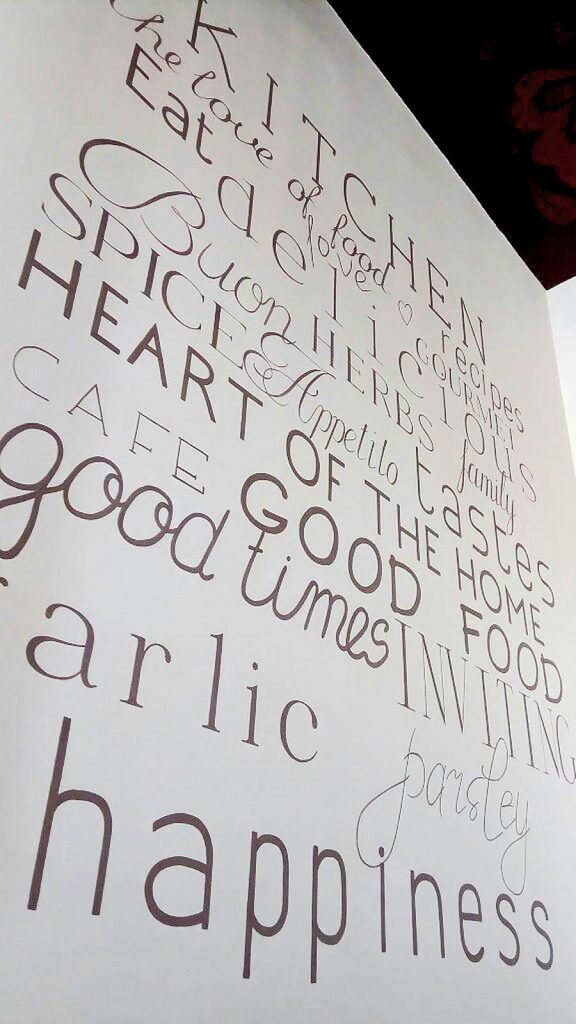 KITCHEN
the love of food
Eat
love
recipes
delicious
GOURMET
Buon
HERBS
family
SPICE &
Appetito
tastes
HEART OF THE HOME
CAFE
GOOD FOOD
good times
INVITING
arlic
parsley
happiness